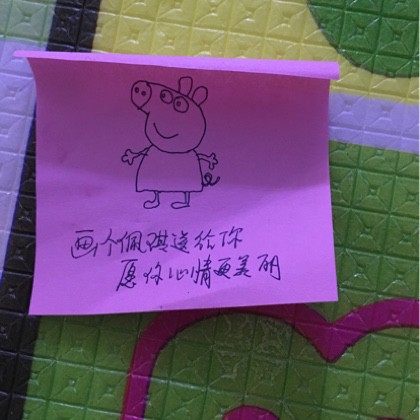 画个佩琪送给你
愿你心情更美丽